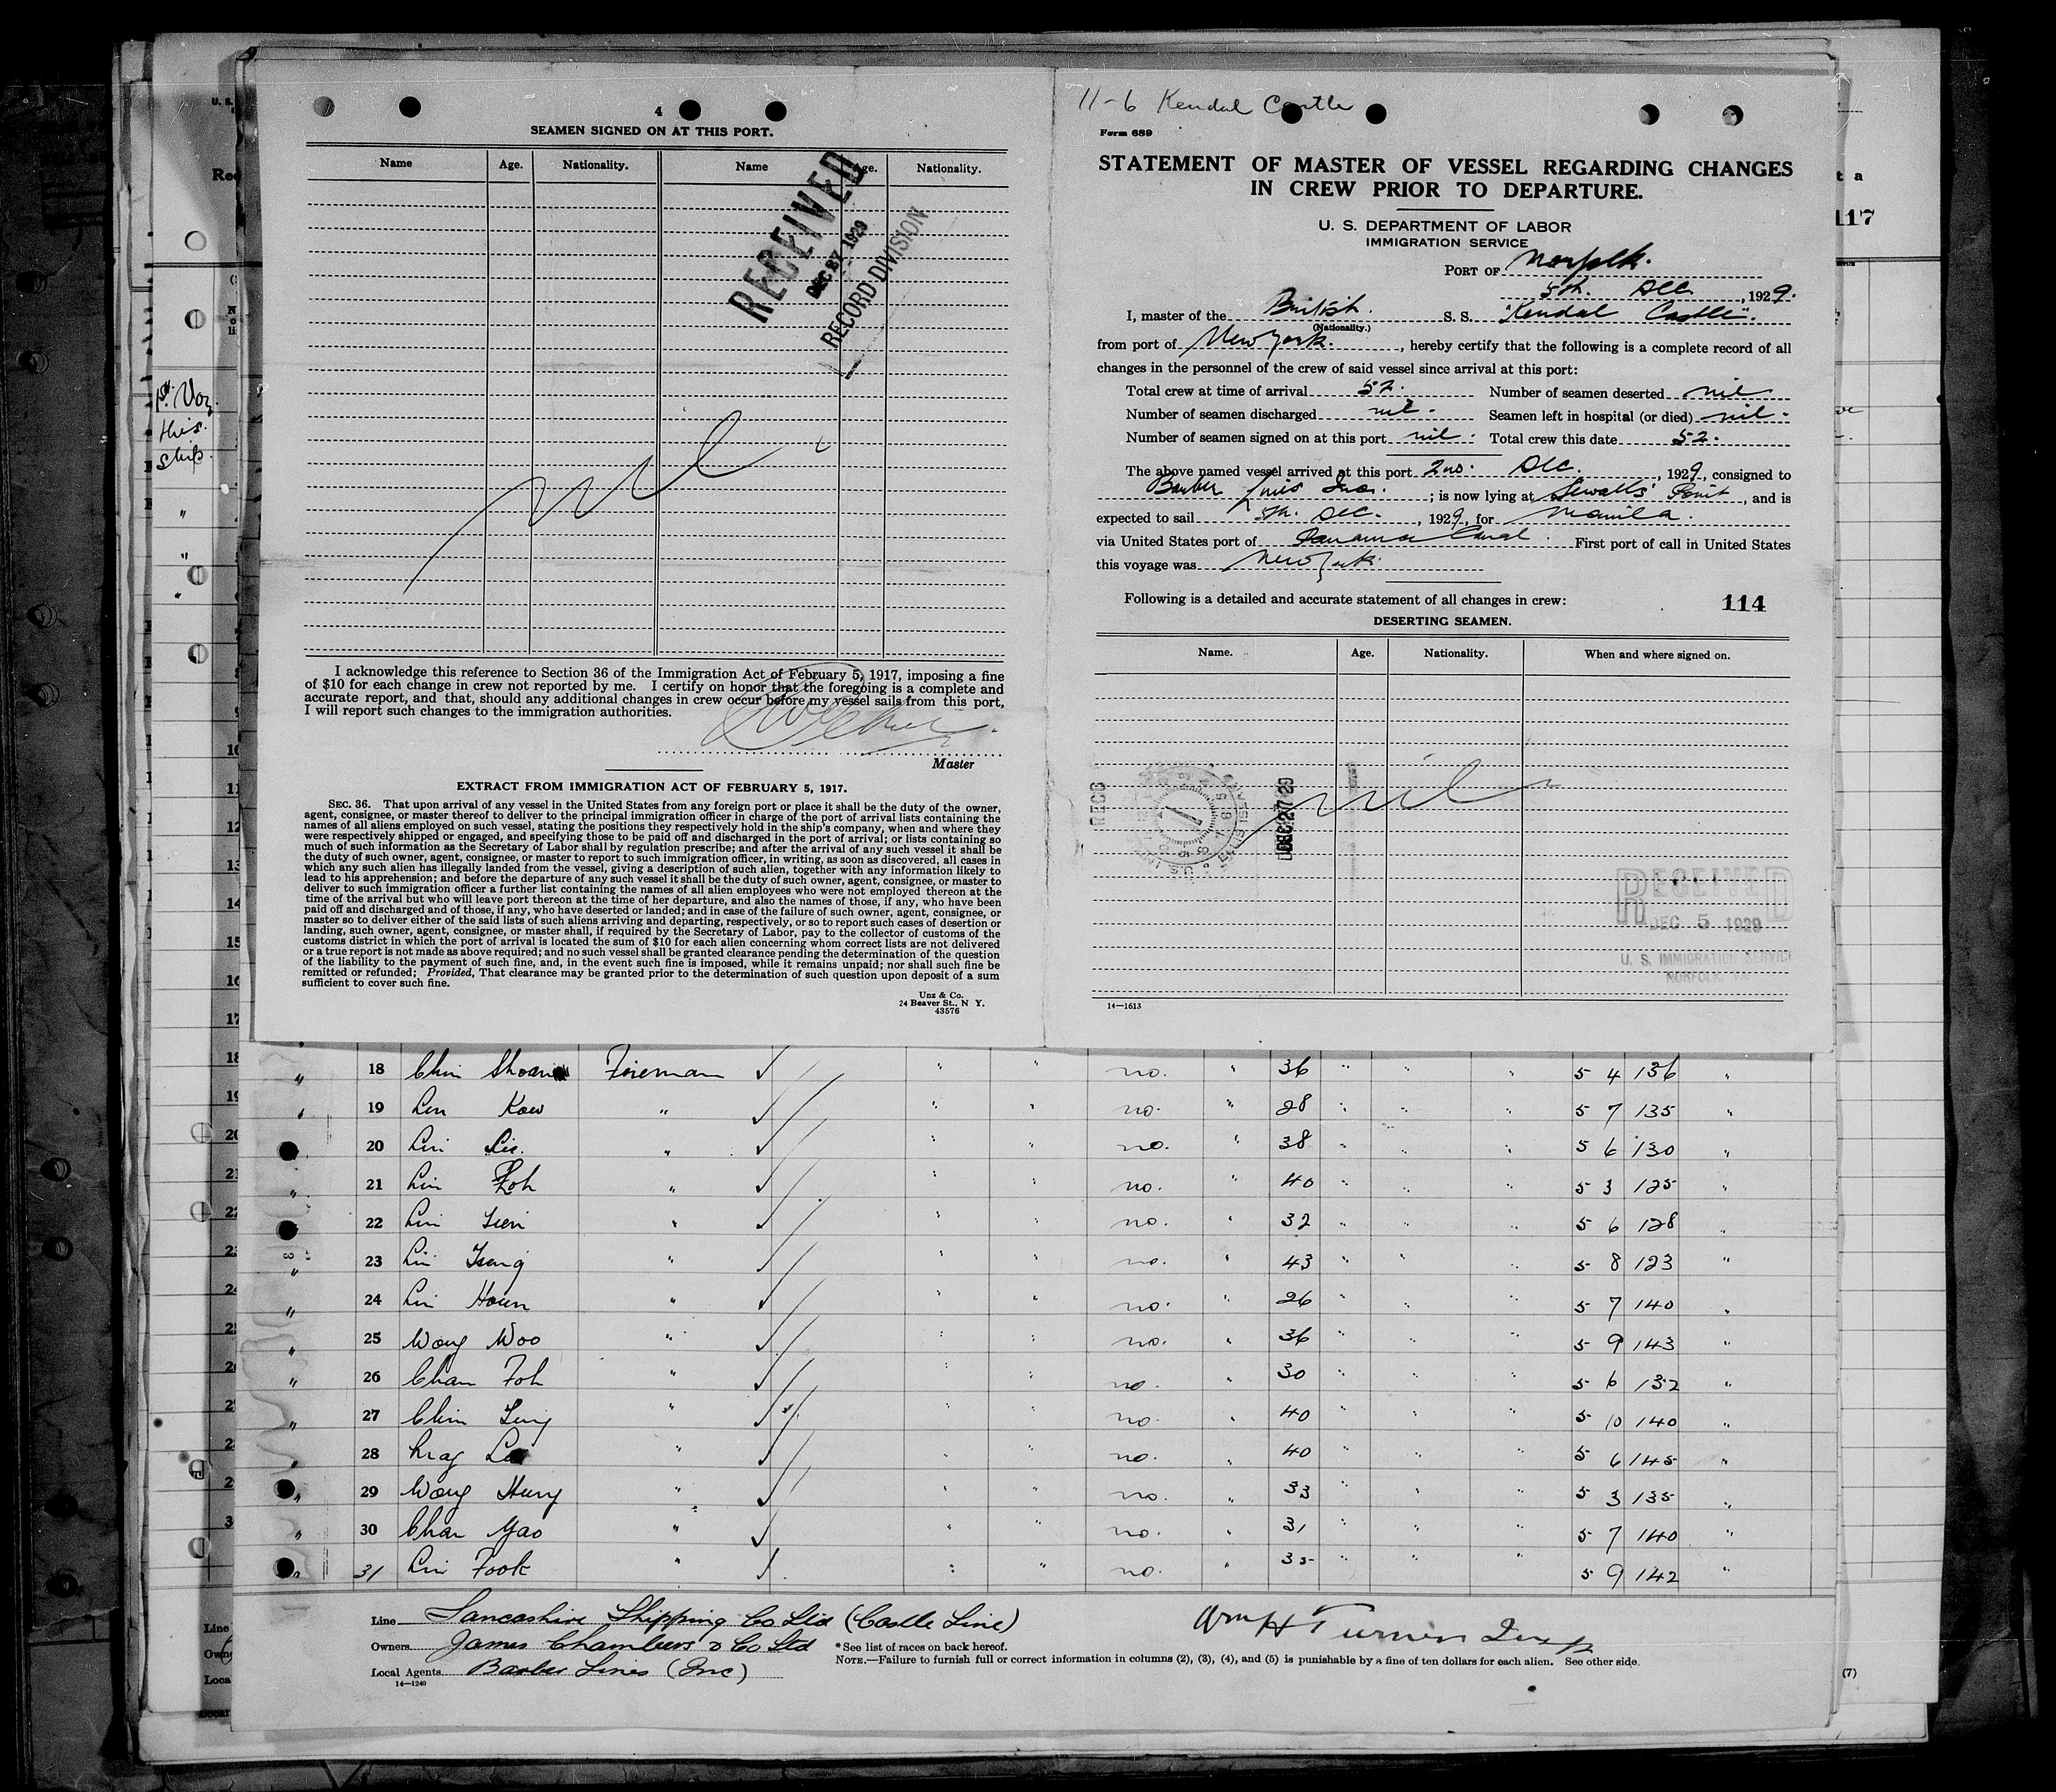 4
SEAMEN SIGNED ON AT THIS PORT.
Name Age. Nationality. Name Age. Nationality.
RECEIVED
DEC 27 1929
RECORD DIVISION
nil
I acknowledge this reference to Section 36 of the Immigration Act of February 5, 1917, imposing a fine
of $10 for each change in crew not reported by me. I certify on honor that the foregoing is a complete and
accurate report, and that, should any additional changes in crew occur before my vessel sails from this port,
I will report such changes to the immigration authorities.
Master
EXTRACT FROM IMMIGRATION ACT OF FEBRUARY 5, 1917.
SEC. 36. That upon arrival of any vessel in the United States from any foreign port or place it shall be the duty of the owner,
agent, consignee, or master thereof to deliver to the principal immigration officer in charge of the port of arrival lists containing the
names of all aliens employed on such vessel, stating the positions they respectively hold in the ship's company, when and where they
were respectively shipped or engaged, and specifying those to be paid off and discharged in the port of arrival; or lists containing so
much of such information as the Secretary of Labor shall by regulation prescribe; and after the arrival of any such vessel it shall be
the duty of such owner, agent, consignee, or master to report to such immigration officer, in writing, as soon as discovered, all cases in
which any such alien has illegally landed from the vessel, giving a description of such alien, together with any information likely to
lead to his apprehension; and before the departure of any such vessel it shall be the duty of such owner, agent, consignee, or master to
deliver to such immigration officer a further list containing the names of all alien employees who were not employed thereon at the
time of the arrival but who will leave port thereon at the time of her departure, and also the names of those, if any, who have been
paid off and discharged and of those, if any, who have deserted or landed; and in case of the failure of such owner, agent, consignee, or
master so to deliver either of the said lists of such aliens arriving and departing, respectively, or so to report such cases of desertion or
landing, such owner, agent, consignee, or master shall, if required by the Secretary of Labor, pay to the collector of customs of the
customs district in which the port of arrival is located the sum of $10 for each alien concerning whom correct lists are not delivered
or a true report is not made as above required; and no such vessel shall be granted clearance pending the determination of the question
of the liability to the payment of such fine, and, in the event such fine is imposed, while it remains unpaid; nor shall such fine be
remitted or refunded; Provided, That clearance may be granted prior to the determination of such question upon deposit of a sum
sufficient to cover such fine.
Unz & Co.
24 Beaver St., N Y.
43576
11-6 Kendal Castle
Form 689
STATEMENT OF MASTER OF VESSEL REGARDING CHANGES
IN CREW PRIOR TO DEPARTURE.
U. S. DEPARTMENT OF LABOR
IMMIGRATION SERVICE
PORT OF Norfolk.
5th. Dec. , 1929.
I, master of the British. S. S. "Kendal Castle".
(Nationality.)
from port of New York. , hereby certify that the following is a complete record of all
changes in the personnel of the crew of said vessel since arrival at this port:
Total crew at time of arrival 52. Number of seamen deserted nil
Number of seamen discharged nil. Seamen left in hospital (or died) nil.
Number of seamen signed on at this port nil. Total crew this date 52.
The above named vessel arrived at this port 2nd. Dec. , 1929, consigned to
Barber Lines Inc. ; is now lying at Sewalls Point, and is
expected to sail 5th. Dec. , 1929, for Manila.
via United States port of Panama Canal. First port of call in United States
this voyage was New York.
Following is a detailed and accurate statement of all changes in crew: 114
DESERTING SEAMEN.
Name. Age. Nationality. When and where signed on.
nil
DEC 27 29
RECEIVED
DEC 5 1929
U. S. IMMIGRATION SERVICE
NORFOLK, VA.
14—1613
117
1st. Voy.
this
ship.
18 Chin Fireman no. " 36 5 4 136 "
19 Lin Kow " no. " 28 5 7 135 "
20 Lin " no. " 38 5 6 130 "
21 Lin Foh " no. " 40 5 3 125 "
22 Lin " no. " 32 5 6 128 "
23 Lin Tsang " no. " 43 5 8 123 "
24 Lin Houn " no. " 26 5 7 140 "
25 Wong Woo " no. " 36 5 9 143 "
26 Chan Foh " no. " 30 5 6 132 "
27 Chin Ling " no. " 40 5 10 140 "
28 " no. " 40 5 6 145 "
29 Wong Hung " no. " 33 5 3 135 "
30 Chan Yao " no. " 31 5 7 140 "
31 Lin Fook " no. " 35 5 9 142 "
Line Lancashire Shipping Co Ltd (Castle Line)
Owners James Chambers & Co Ltd *See list of races on back hereof.
NOTE.—Failure to furnish full or correct information in columns (2), (3), (4), and (5) is punishable by a fine of ten dollars for each alien. See other side.
Local Agents Barber Lines (Inc)
14—1240
Wm H Turner Insp
(7)